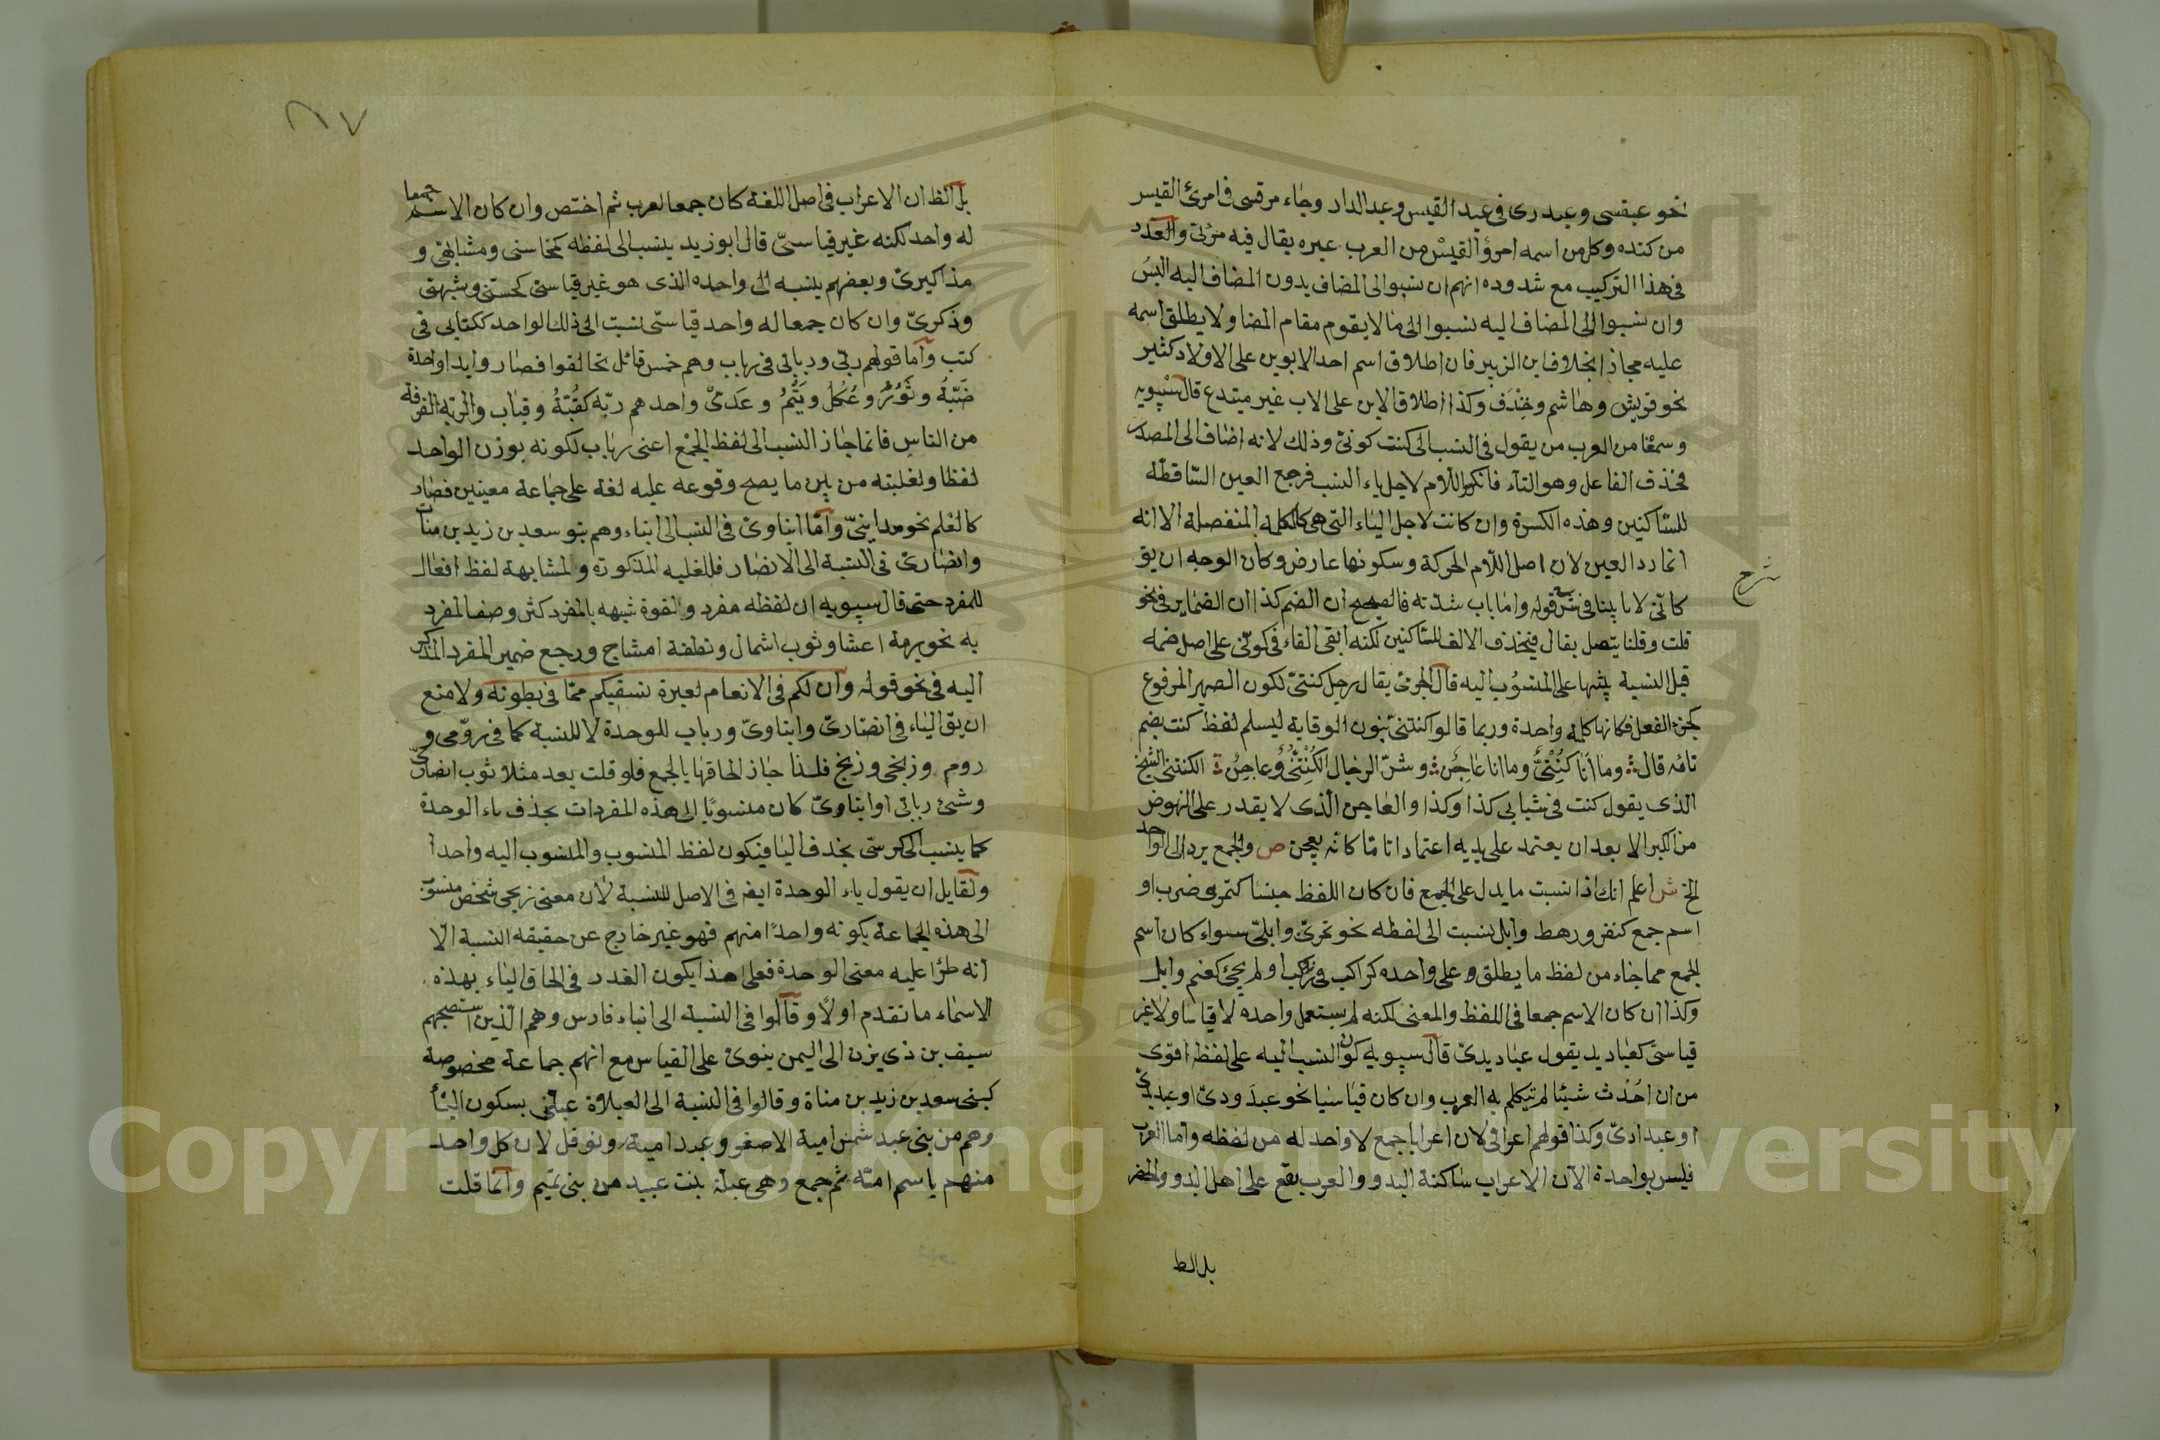 نحو عبقسى وعبدرى فى عبد القيس وعبد الدار وجاء مرقسى فى امرئ القيس
من كنده وكل من اسمه امرؤ القيس من العرب غيره يقال فيه مرئى والعذر
فى هذا التركيب مع شذوذه انهم ان نسبوا الى المضاف بدون المضاف اليه التبس
وان نسبوا الى المضاف اليه نسبوا الى ما لا يقوم مقام المضاف ولا يطلق اسمه
عليه مجازا بخلاف ابن الزبير فان اطلاق اسم احد الابوين على الاولاد كثير
نحو قريش وهاشم وخندف وكذا اطلاق الابن على الاب غير مبتدع قال سيبويه
وسمعنا من العرب من يقول فى النسب الى كنت كونى وذلك لانه اضاف الى المصدر
فحذف الفاعل وهو التاء فانكسر اللام لاجل ياء النسب فرجع العين الساقطة
للساكنين وهذه الكسرة وان كانت لاجل الياء التى هى كالكلمة المنفصلة الا انه
انما رد العين لان اصل اللام الحركة وسكونها عارض وكان الوجه ان يق
كانى لانا بينا فى شرح قوله واما باب سدته فالصحيح ان الضم كذا ان الضماير فى نحو
قلت وقلنا يتصل بقال فيحذف الالف للساكنين لكنه ابقى الفاء فى كونى على اصل ضمه
قبل النسبة تنبيها على المنسوب اليه قال الجرمى يقال رجل كنتى لكون الضمير المرفوع
كجزء الفعل فكانها كلمة واحدة وربما قالوا كنتنى بنون الوقاية ليسلم لفظ كنت بضم
تائه قال وما انا كنتى وما انا عاجن وشر الرجال الكنتنى وعاجن الكنتنى الشيخ
الذى يقول كنت فى شبابى كذا وكذا والعاجن الذى لا يقدر على النهوض
من الكبر الا بعد ان يعتمد على يديه اعتمادا تاما كانه يعجن ص والجمع يرد الى الواحد
الخ ش اعلم انك اذا نسبت ما يدل على الجمع فان كان اللفظ جنسا كتمر وضرب او
اسم جمع كنفر ورهط وابل نسبت الى لفظه نحو تمرى وابلى سواء كان اسم
الجمع مما جاء من لفظ ما يطلق على واحده كراكب فى ركب او لم يجئ كغنم وابل
وكذا ان كان الاسم جمعا فى اللفظ والمعنى لكنه لم يستعمل واحده لا قياسا ولا غير
قياسى كعباديد يقول عباديدى قال سيبويه كون النسب اليه على لفظه اقوى
من ان احدث شيئا لم تتكلم به العرب وان كان قياسيا نحو عبدودى او عبديدى
او عبدادى وكذا قولهم اعرابى لان اعرابا جمع لا واحد له من لفظه واما العرب
فليس بواحده الآن الاعراب ساكنة البدو والعرب يقع على اهل البدو والحضر
بل الظ
شرح
٨٧
بل الظ ان الاعراب فى اصل اللغة كان جمعا لعرب ثم اختص وان كان الاسم جمعا
له واحد لكنه غير قياسى قال ابو زيد ينسب الى لفظه كمحاسنى ومشابهى و
مذاكيرى وبعضهم ينسبه الى واحده الذى هو غير قياسى كحسنى وشبهى
وذكرى وان كان جمعا له واحد قياسى نسبت الى ذلك الواحد ككتابى فى
كتب واما قولهم ربى وربابى فى رباب وهم خمس قبائل تحالفوا فصاروا يدا واحدة
ضبة وثور وعكل وتيم وعدى واحدهم ربة كقبة وقباب والربة الفرقة
من الناس فانما جاز النسب الى لفظ الجمع اعنى رباب لكونه بوزن الواحد
لفظا ولغلبته من بين ما يصح وقوعه عليه لغة على جماعة معينين فصار
كالعلم نحو مداينى واما ابناوى فى النسب الى ابناء وهم بنو سعد بن زيد بن مناة
وانصارى فى النسبة الى الانصار فللغلبه المذكورة ولمشابهة لفظ افعال
للمفرد حتى قال سيبويه ان لفظه مفرد ولقوة شبهه بالمفرد كثر وصف المفرد
به نحو برمة اعشار وثوب اسمال ونطفة امشاج ورجع ضمير المفرد المذكر
اليه فى نحو قوله وان لكم فى الانعام لعبرة نسقيكم مما فى بطونه ولا منع
ان يق الياء فى انصارى وابناوى وربابى للوحدة لا للنسبة كما فى رومى و
روم وزنجى وزنج فلذا جاز الحاقها بالجمع فلو قلت بعد مثلا ثوب انصارى
وشئ ربابى او ابناوى كان منسوبا الى هذه المفردات بحذف ياء الوحدة
كما ينسب الى كرسى بحذف اليا فيكون لفظ المنسوب والمنسوب اليه واحدا
ولقايل ان يقول ياء الوحدة ايض فى الاصل للنسبة لان معنى زنجى شخص منسوب
الى هذه الجماعة بكونه واحدا منهم فهو غير خارج عن حقيقة النسبة الا
انه طرا عليه معنى الوحدة فعلى هذا يكون العذر فى الحاق الياء بهذه
الاسماء ما تقدم اولا وقالوا فى النسبة الى ابناء فارس وهم الذين استصحبهم
سيف بن ذى يزن الى اليمن بنوى على القياس مع انهم جماعة مخصوصة
كبنى سعد بن زيد بن مناة وقالوا فى النسبة الى العبلات عبلى بسكون الباء
وهم من بنى عبد شمس امية الاصغر وعبد امية ونوفل لان كل واحد
منهم ياسم امه ثم جمع وهى عبلة بنت عبيد من بنى تميم وانما قلت
Copyright © King Saud University